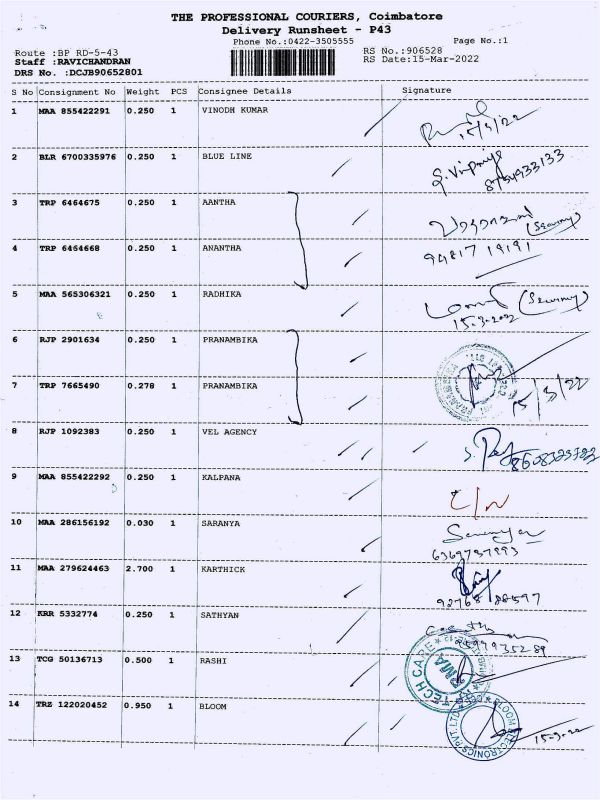 THE PROFESSIONAL COURIERS, Coimbatore
Delivery Runsheet - P43
Phone No.:0422-3505555 Page No.:1
Route :BP RD-5-43 RS No.:906528
Staff :RAVICHANDRAN RS Date:15-Mar-2022
DRS No. :DCJB90652801
S No Consignment No Weight PCS Consignee Details Signature
1 MAA 855422291 0.250 1 VINODH KUMAR
15/3/22
2 BLR 6700335976 0.250 1 BLUE LINE
3 TRP 6464675 0.250 1 AANTHA
4 TRP 6464668 0.250 1 ANANTHA
94817 19191
5 MAA 565306321 0.250 1 RADHIKA
15-3-2022
6 RJP 2901634 0.250 1 PRANAMBIKA
7 TRP 7665490 0.278 1 PRANAMBIKA
15/3/22
8 RJP 1092383 0.250 1 VEL AGENCY
9 MAA 855422292 0.250 1 KALPANA
C/N
10 MAA 286156192 0.030 1 SARANYA
11 MAA 279624463 2.700 1 KARTHICK
12 KRR 5332774 0.250 1 SATHYAN
13 TCG 50136713 0.500 1 RASHI
TECH CARE
14 TRZ 122020452 0.950 1 BLOOM